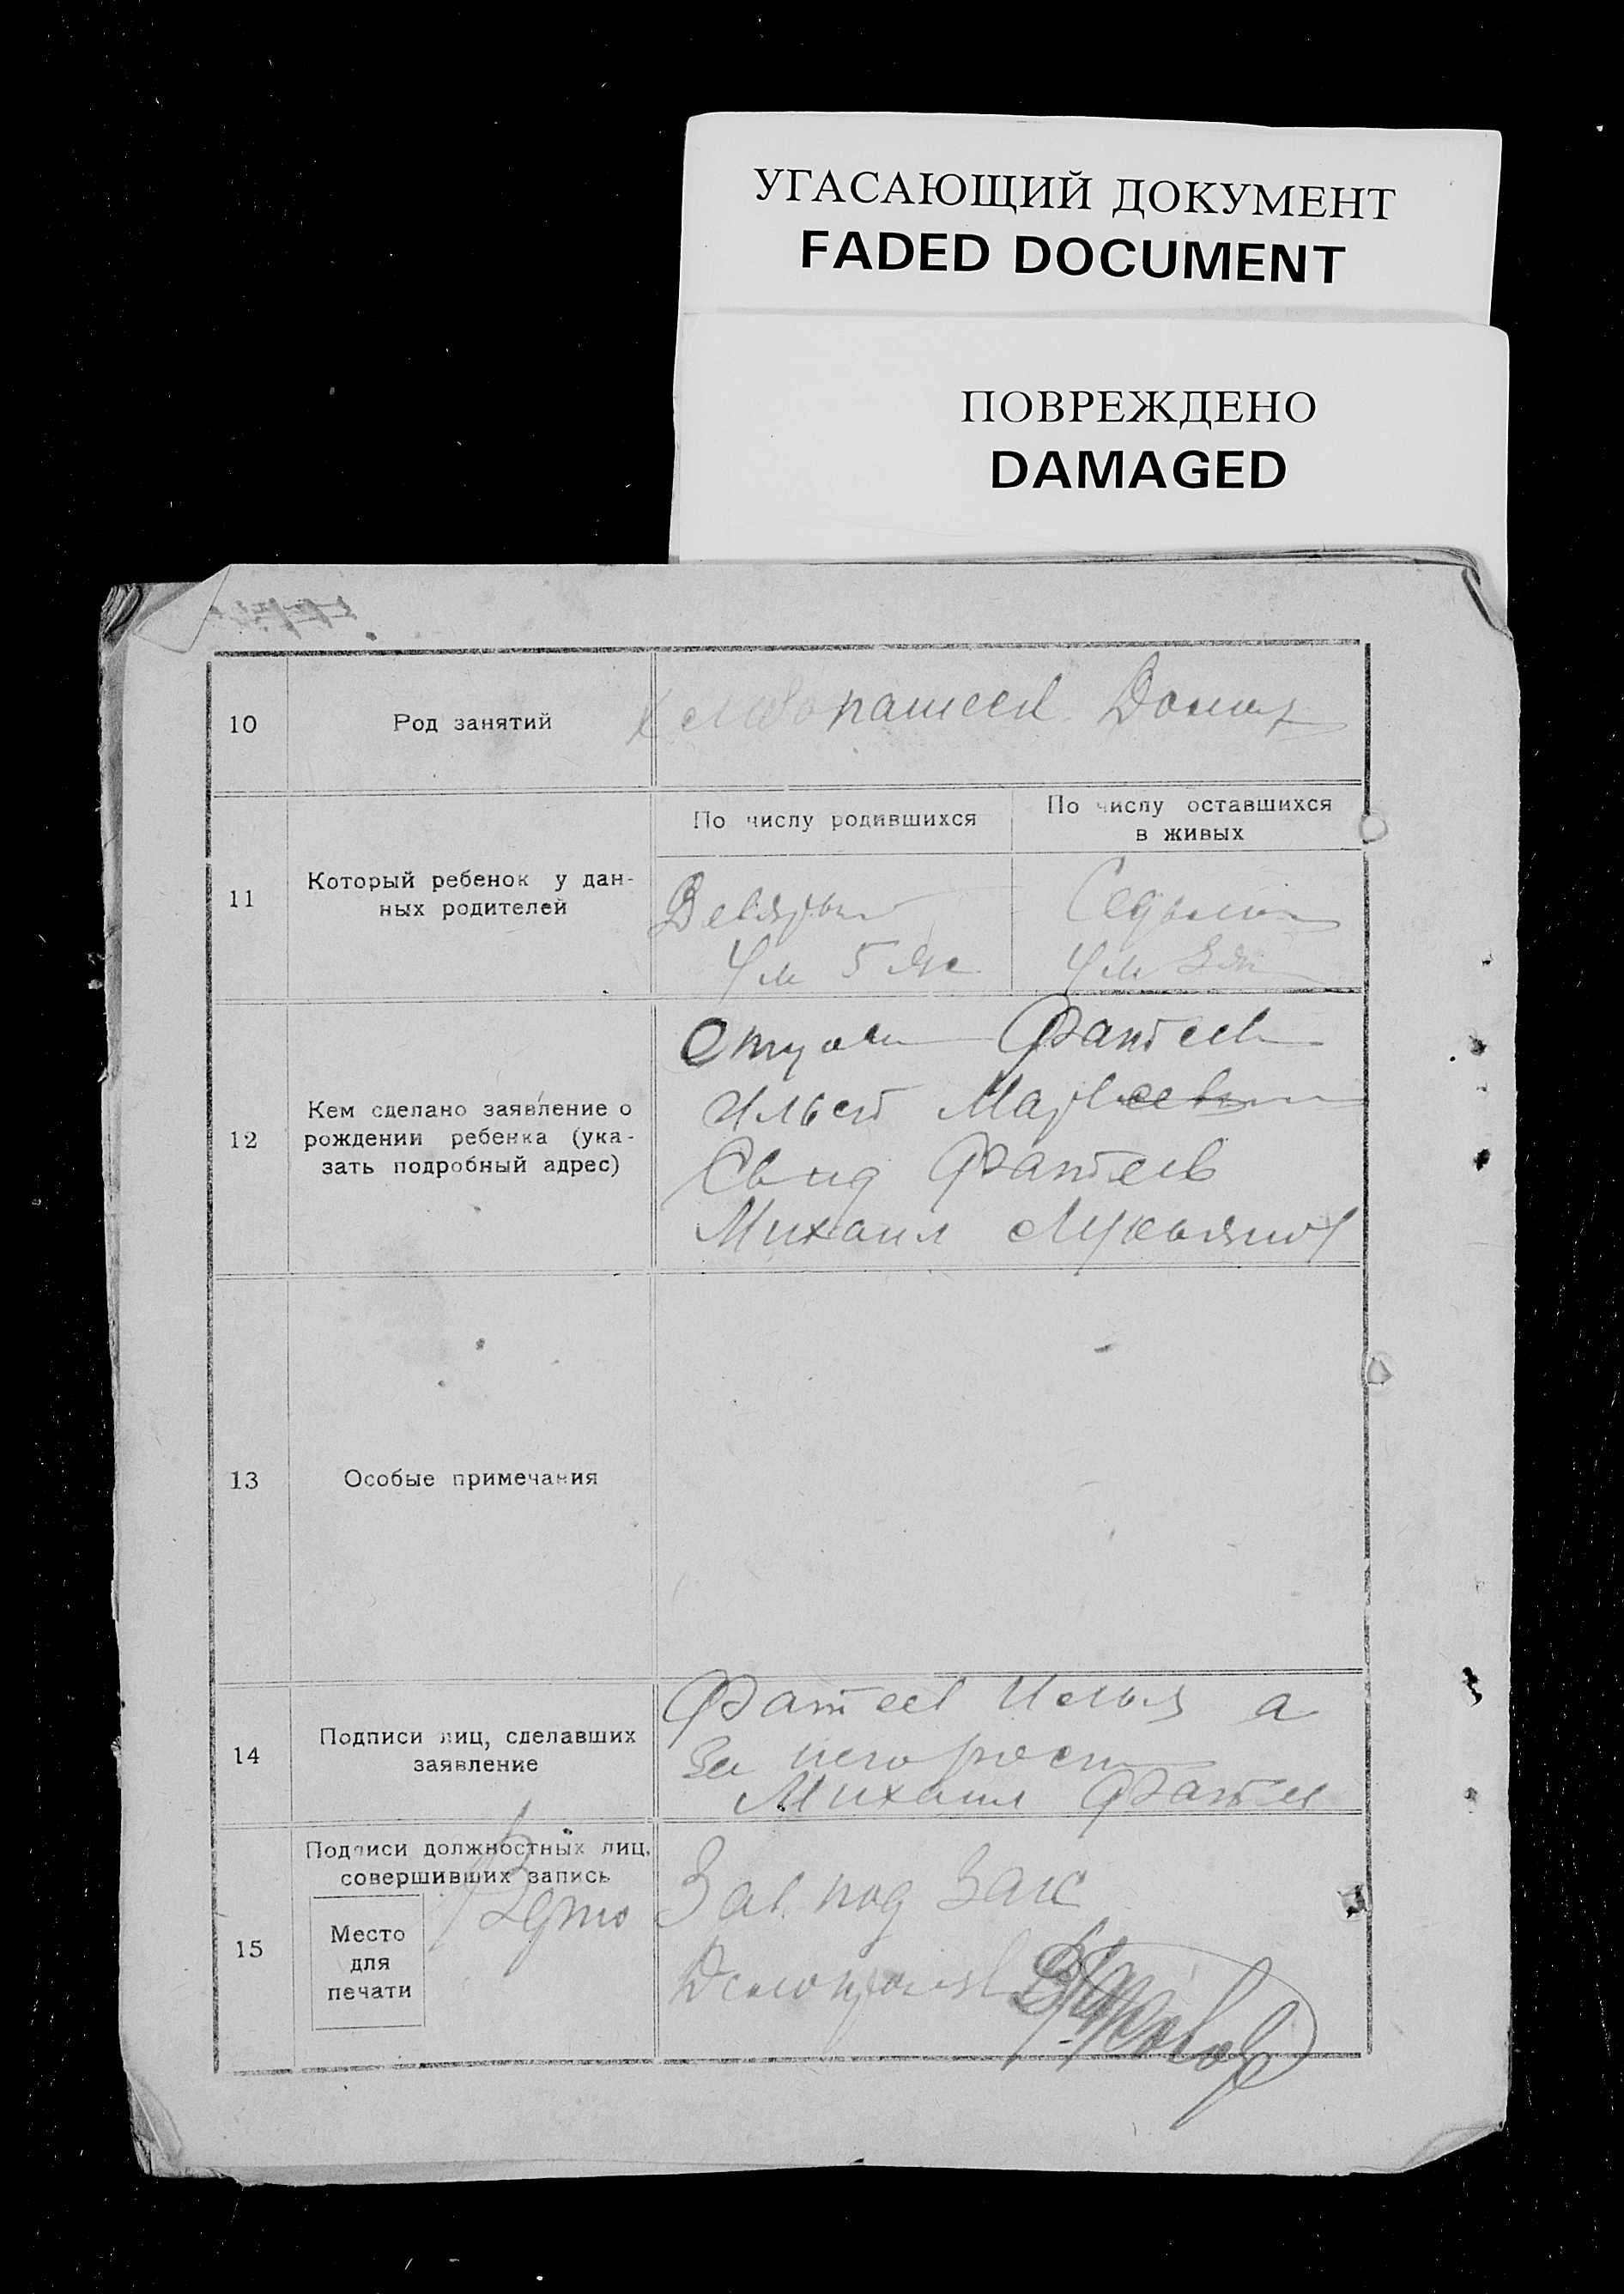 УГАСАЮЩИЙ ДОКУМЕНТ
FADED DOCUMENT
ПОВРЕЖДЕНО
DAMAGED
10
Род занятий
Хлебопашест Домаш
11
Который ребенок у дан-
ных родителей
По числу родившихся
По числу оставшихся
в живых
Девятый
4 м 5 ж
Седьмой
4 м 3 ж
12
Кем сделано заявление о
рождении ребенка (ука-
зать подробный адрес)
Отцом Фатеев
Ильей
Свид Фатеев
Михаил Лукьянов
13
Особые примечания
14
Подписи лиц, сделавших
заявление
Фатеев Илья а
за него росп
Михаил Фатеев
15
Подписи должностных лиц,
совершивших запись
Место
для
печати
Верно
Зав под Загс
Делопроизв